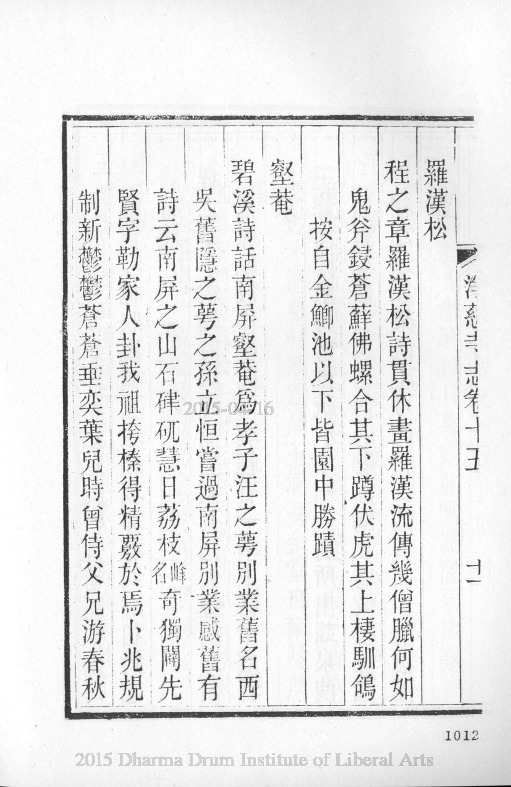 淨慈寺志卷十五
十一
羅漢松
程之章羅漢松詩貫休畫羅漢流傳幾僧臘何如
鬼斧鋟蒼蘚佛螺合其下蹲伏虎其上棲馴鴿
按自金鯽池以下皆園中勝蹟
壑菴
碧溪詩話南屛壑菴爲孝子汪之萼別業舊名西
吳舊隱之萼之孫立恒嘗過南屛別業感舊有
詩云南屛之山石硉矹慧日荔枝峰名奇獨闢先
賢字勒家人卦我祖搘榛得精覈於焉卜兆規
制新鬱鬱蒼蒼垂奕葉兒時曾侍父兄游春秋
1012
2015-04-16
2015 Dharma Drum Institute of Liberal Arts